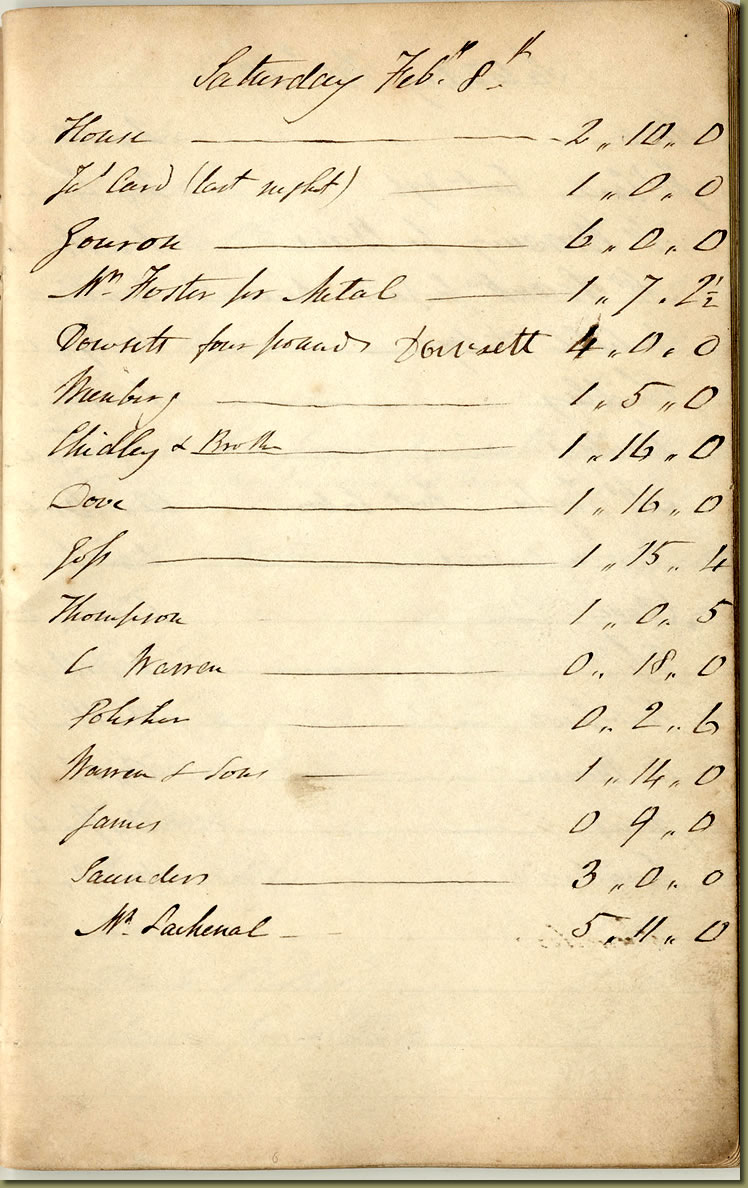 Saturday Feby. 8th
House 2 „ 10 „ 0
Jas Card (last night) 1 „ 0 „ 0
Jourose 6 „ 0 „ 0
Mr. Foster for Metal 1 „ 7 „ 2½
Dowsett four pounds Dowsett 4 „ 0 „ 0
1 „ 5 „ 0
Chidley & Broth 1 „ 16 „ 0
Dove 1 „ 16 „ 0
Goss 1 „ 15 „ 4
Thompson 1 „ 0 „ 5
C Warren 0 „ 18 „ 0
Polisher 0 „ 2 „ 6
Warren & Sons 1 „ 14 „ 0
James 0 9 „ 0
Saunders 3 „ 0 „ 0
Mr. Lachenal 5 „ 11 „ 0
6